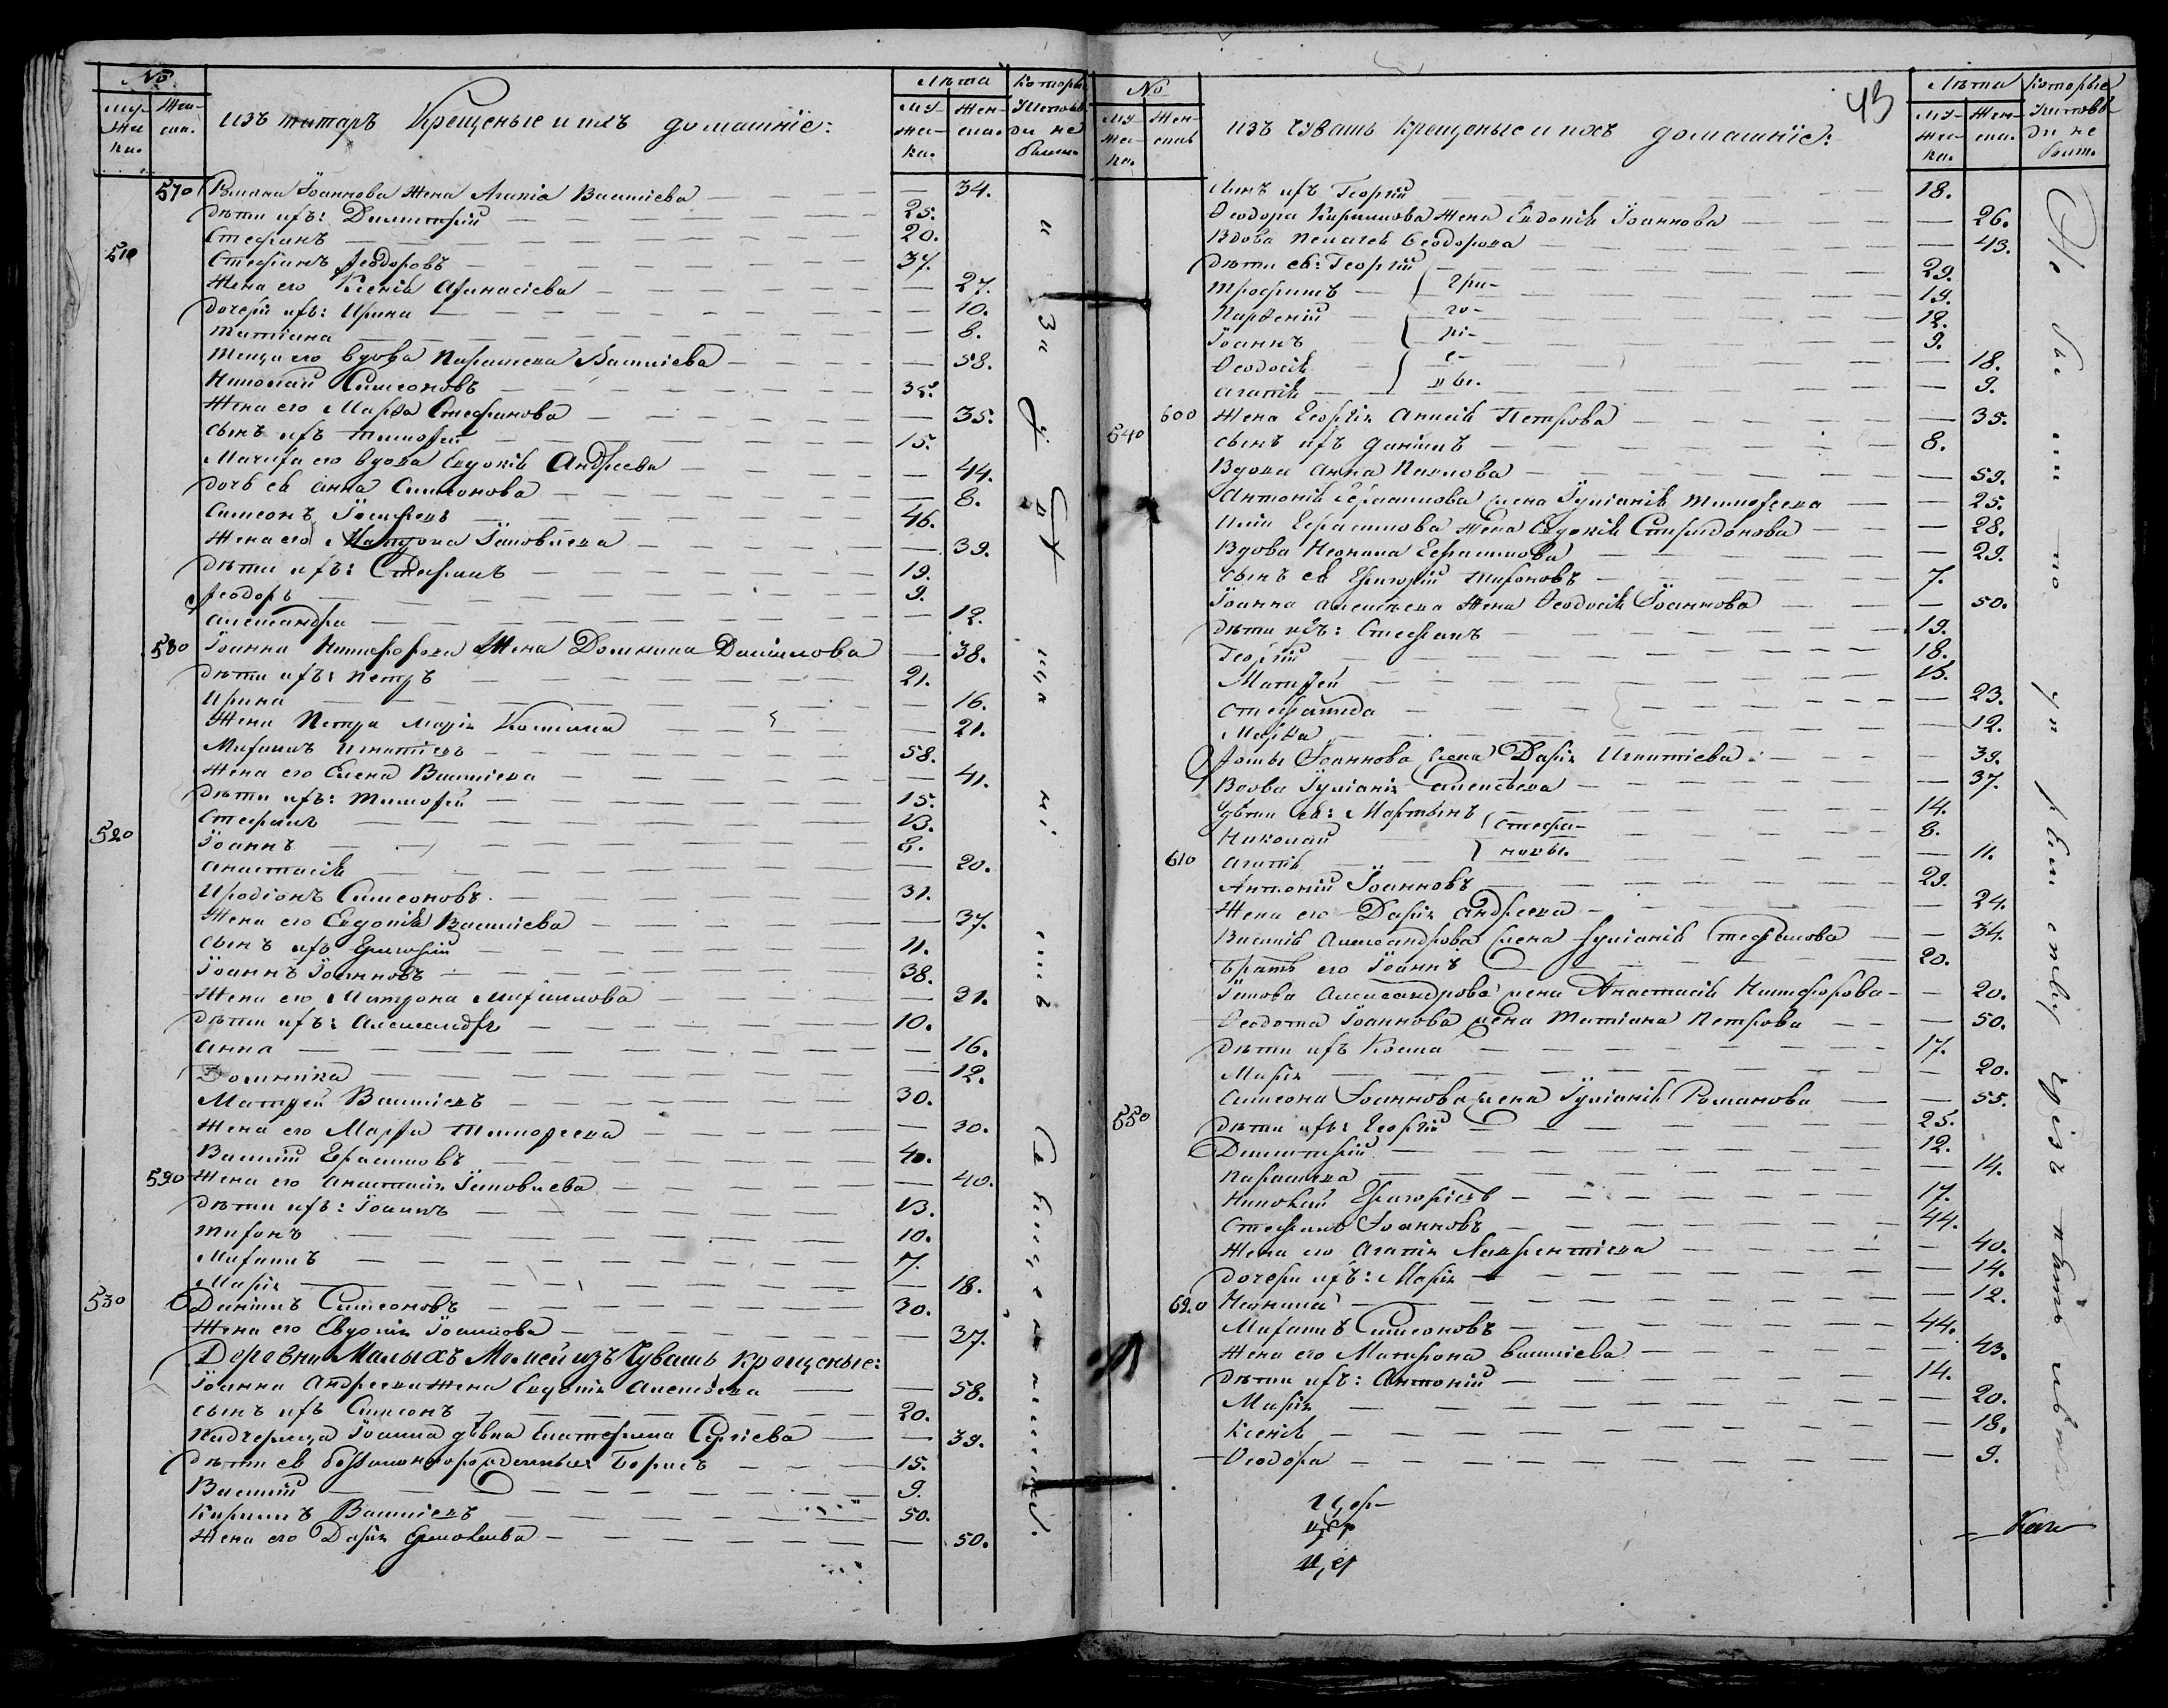 №
Му-
же-
ска.
Жен-
ска.
изъ татаръ Крещеные и ихъ домашнїе:
Лѣта
Му-
же-
ска.
Жен-
ска.
Которые
Исповѣ-
ди не
570 Іоаннова жена Агапіа Василіева — 34.
дѣти ихъ: Димитрій 25.
Стефанъ 20.
510 Стефанъ Ѳеодоровъ 37.
Жена его Ксенія Афанасіева — 27.
дочери ихъ: Ирина — 10.
Татіана — 8.
Теща его вдова Параскева Василіева — 58.
Николай Симеоновъ 35.
Жена его Марфа Стефанова — 35.
сынъ ихъ Тимофей 15.
Мачиха его вдова Евдокія Андреева — 44.
дочь ея Анна Симеонова — 8.
Симеонъ Іосифовъ 46.
Жена его Матрона Іаковлева — 39.
дѣти ихъ: Стефанъ 19.
Ѳеодоръ 9.
Александра — 12.
580 Іоанна Никифорова Жена Домника Даніилова — 38.
дѣти ихъ: Петръ 21.
Ирина — 16.
Жена Петра Марія Космина — 21.
Михаилъ Игнатіевъ 58.
Жена его Елена Василіева — 41.
дѣти ихъ: Тимофей 15.
Стефанъ 13.
520 Іоаннъ 8.
Анастасія — 20.
Иродіонъ Симеоновъ 31.
Жена его Евдокія Василіева — 37.
сынъ ихъ Григорій 11.
Іоаннъ Іоанновъ 38.
Жена его Матрона Михаилова — 31.
дѣти ихъ: Александръ 10.
Анна — 16.
Домника — 12.
Матфей Василіевъ 30.
Жена его Марфа Тимофеева — 30.
Василій Герасимовъ 40.
590 Жена его Анастасія Іаковлева — 40.
дѣти ихъ: Іоаннъ 13.
Тихонъ 10.
Михаилъ 7.
Марія — 18.
530 Даніилъ Симеоновъ 30.
Жена его Евдокія Іоаннова — 37.
Деревни Малыхъ Мелмей изъ Чувашъ крещеные:
Іоанна Андреева жена Евдокія Алексѣева — 58.
сынъ ихъ Симеонъ 20.
Падчерица Іоанна дѣвка Екатерина Сергіева — 39.
дѣти ея беззаконнорожденные: Борисъ 15.
Василій 9.
Кириллъ Василіевъ 50.
Жена его Дарія Ермолаева — 50.
№
Му-
же-
ска.
Жен-
ска
изъ чувашъ крещеные и ихъ домашнїе:
43
Лѣта
Му-
же-
ска.
Жен-
ска.
Которые
Исповѣ-
ди не
быт.
сынъ ихъ Георгій 18.
Ѳеодора Кириллова жена Евдокія Іоаннова — 26.
Вдова Пелагея Ѳеодорова — 43.
дѣти ея: Георгій 29.
Трофимъ 19.
Парѳеній 12.
Іоаннъ 9.
Ѳеодосія — 18.
Агапія — 9.
Гри-
го-
рі-
е-
вы.
600 Жена Георгія Анисія Петрова — 35.
540 сынъ ихъ Даніилъ 8.
Вдова Анна Павлова — 59.
Антонія Герасимова жена Іуліанія Тимофеева — 25.
Иліи Герасимова жена Евдокія Спиридонова — 28.
Вдова Неонила Герасимова — 29.
сынъ ея Григорій Тихоновъ 7.
Іоанна Алексѣева жена Ѳеодосія Іоаннова — 50.
дѣти ихъ: Стефанъ 19.
Георгій 18.
Матфей 15.
Стефанида — 23.
Марѳа — 12.
Ѳомы Іоаннова жена Дарія Игнатіева — 39.
Вдова Іуліанія Алексѣева — 37.
дѣти ея: Мартынъ 14.
Николай 8.
610 Агапія — 11.
Стефа-
новы.
Антоній Іоанновъ 29.
Жена его Дарія Андреева — 24.
Василія Александрова жена Іуліанія Стефанова — 34.
Братъ его Іоаннъ 20.
Іакова Александрова жена Анастасія Никифорова — 20.
Ѳеодота Іоаннова жена Татіана Петрова — 50.
дѣти ихъ Косма 17.
Марія — 20.
Симеона Іоаннова жена Іуліанія Романова — 55.
550 дѣти ихъ: Георгій 25.
Димитрій 12.
Параскева — 14.
Николай Григоріевъ 17.
Стефанъ Іоанновъ 44.
Жена его Агапія Лаврентіева — 40.
дочери ихъ: Марія — 14.
620 Неонила — 12.
Михаилъ Симеоновъ 44.
Жена его Матрона Василіева — 43.
дѣти ихъ: Антоній 14.
Марія — 20.
Ксенія — 18.
Ѳеодора — 9.